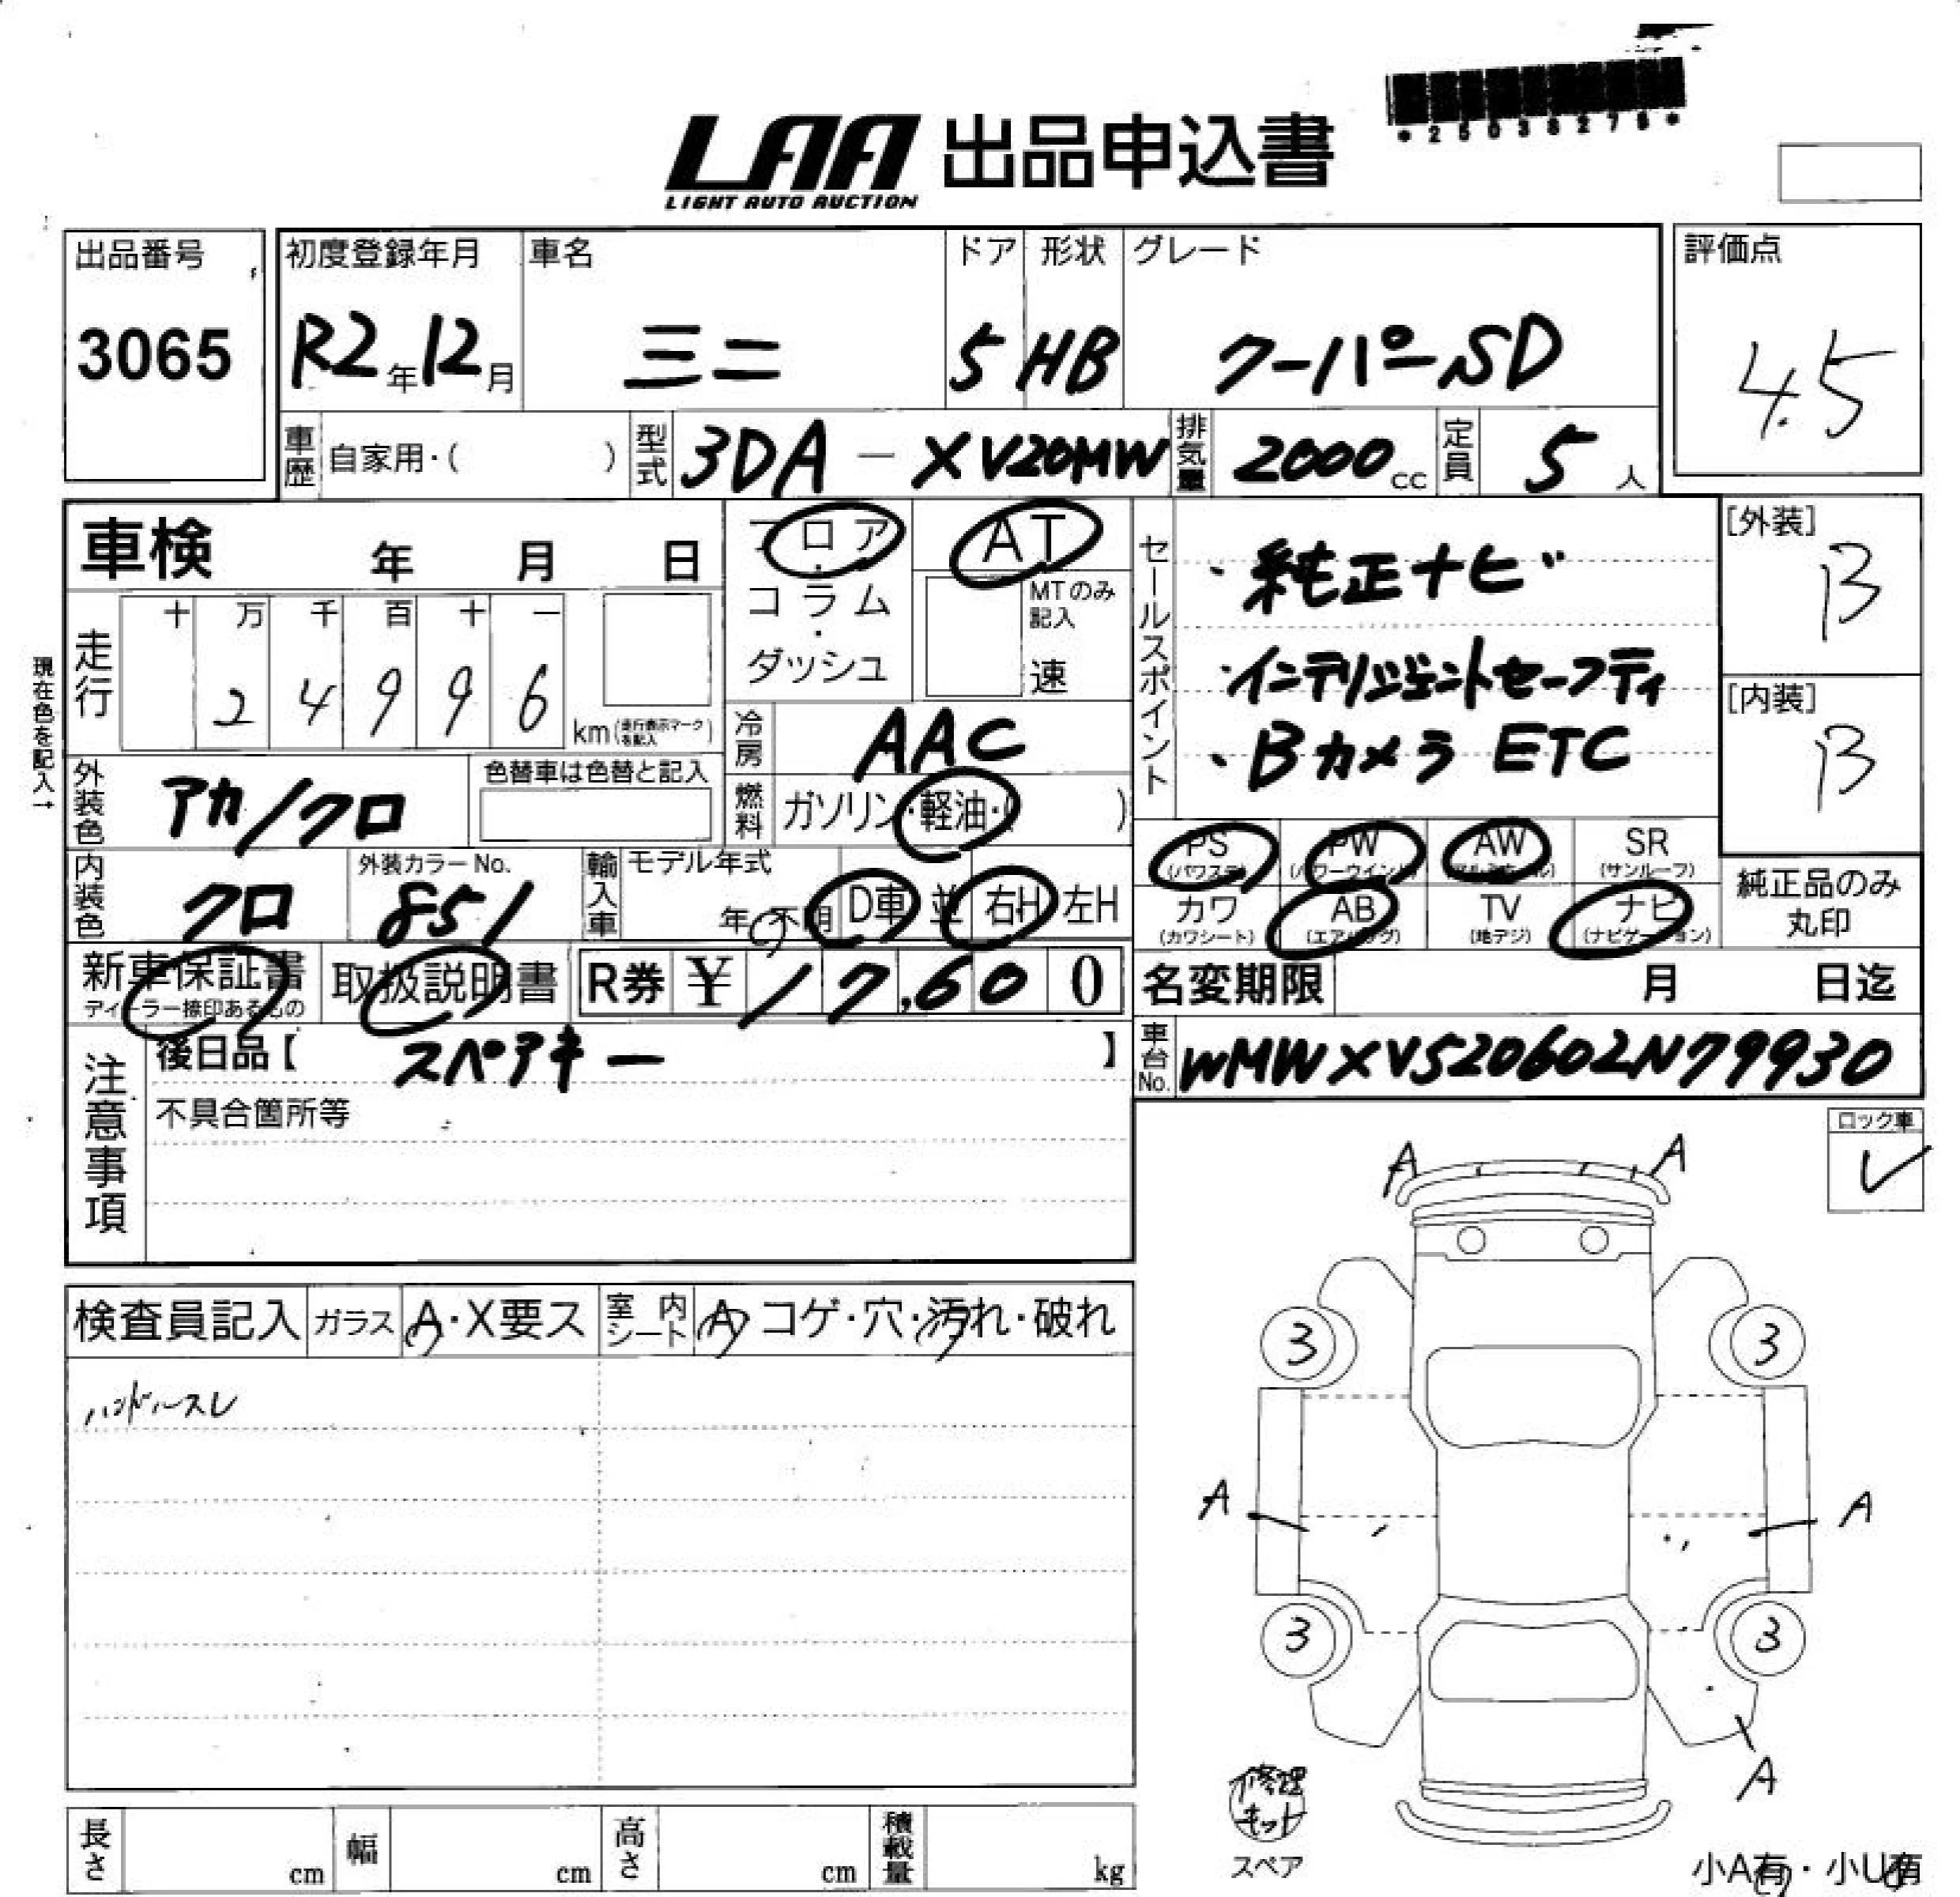 *25038275*
LAA 出品申込書
LIGHT AUTO AUCTION
出品番号
3065
初度登録年月
R2年12月
車名
ミニ
ドア
5
形状
HB
グレード
クーパーSD
評価点
4.5
車歴 自家用・( )
型式 3DA-XV20MW
排気量 2000cc
定員 5人
車検 年 月 日
フロア・コラム・ダッシュ
AT
MTのみ記入
速
現在色を記入→
走行
十 万 千 百 十 一
2 4 9 9 6
km(走行表示マークを記入)
冷房 AAC
燃料 ガソリン・軽油・( )
外装色 アカ/クロ
色替車は色替と記入
内装色 クロ
外装カラーNo. 851
輸入車 モデル年式
年・不明 D車 並 右H 左H
セールスポイント
・純正ナビ
・インテリジェントセーフティ
・Bカメラ ETC
[外装]
B
[内装]
B
PS (パワステ) PW (パワーウインド) AW (アルミホイール) SR (サンルーフ)
カワ (カワシート) AB (エアバッグ) TV (地デジ) ナビ (ナビゲーション)
純正品のみ丸印
新車保証書
ディーラー捺印あるもの
取扱説明書
R券 ¥ 17,600
名変期限 月 日迄
車台No. WMWXV520602N79930
注意事項
後日品【 スペアキー 】
不具合箇所等
ロック車
✓
検査員記入 ガラス A・X要ス 室内シート A コゲ・穴・汚れ・破れ
ハンドルスレ
A A
3 3
A A
3 3
A
修理キット
スペア
小A有・小U有
長さ cm 幅 cm 高さ cm 積載量 kg